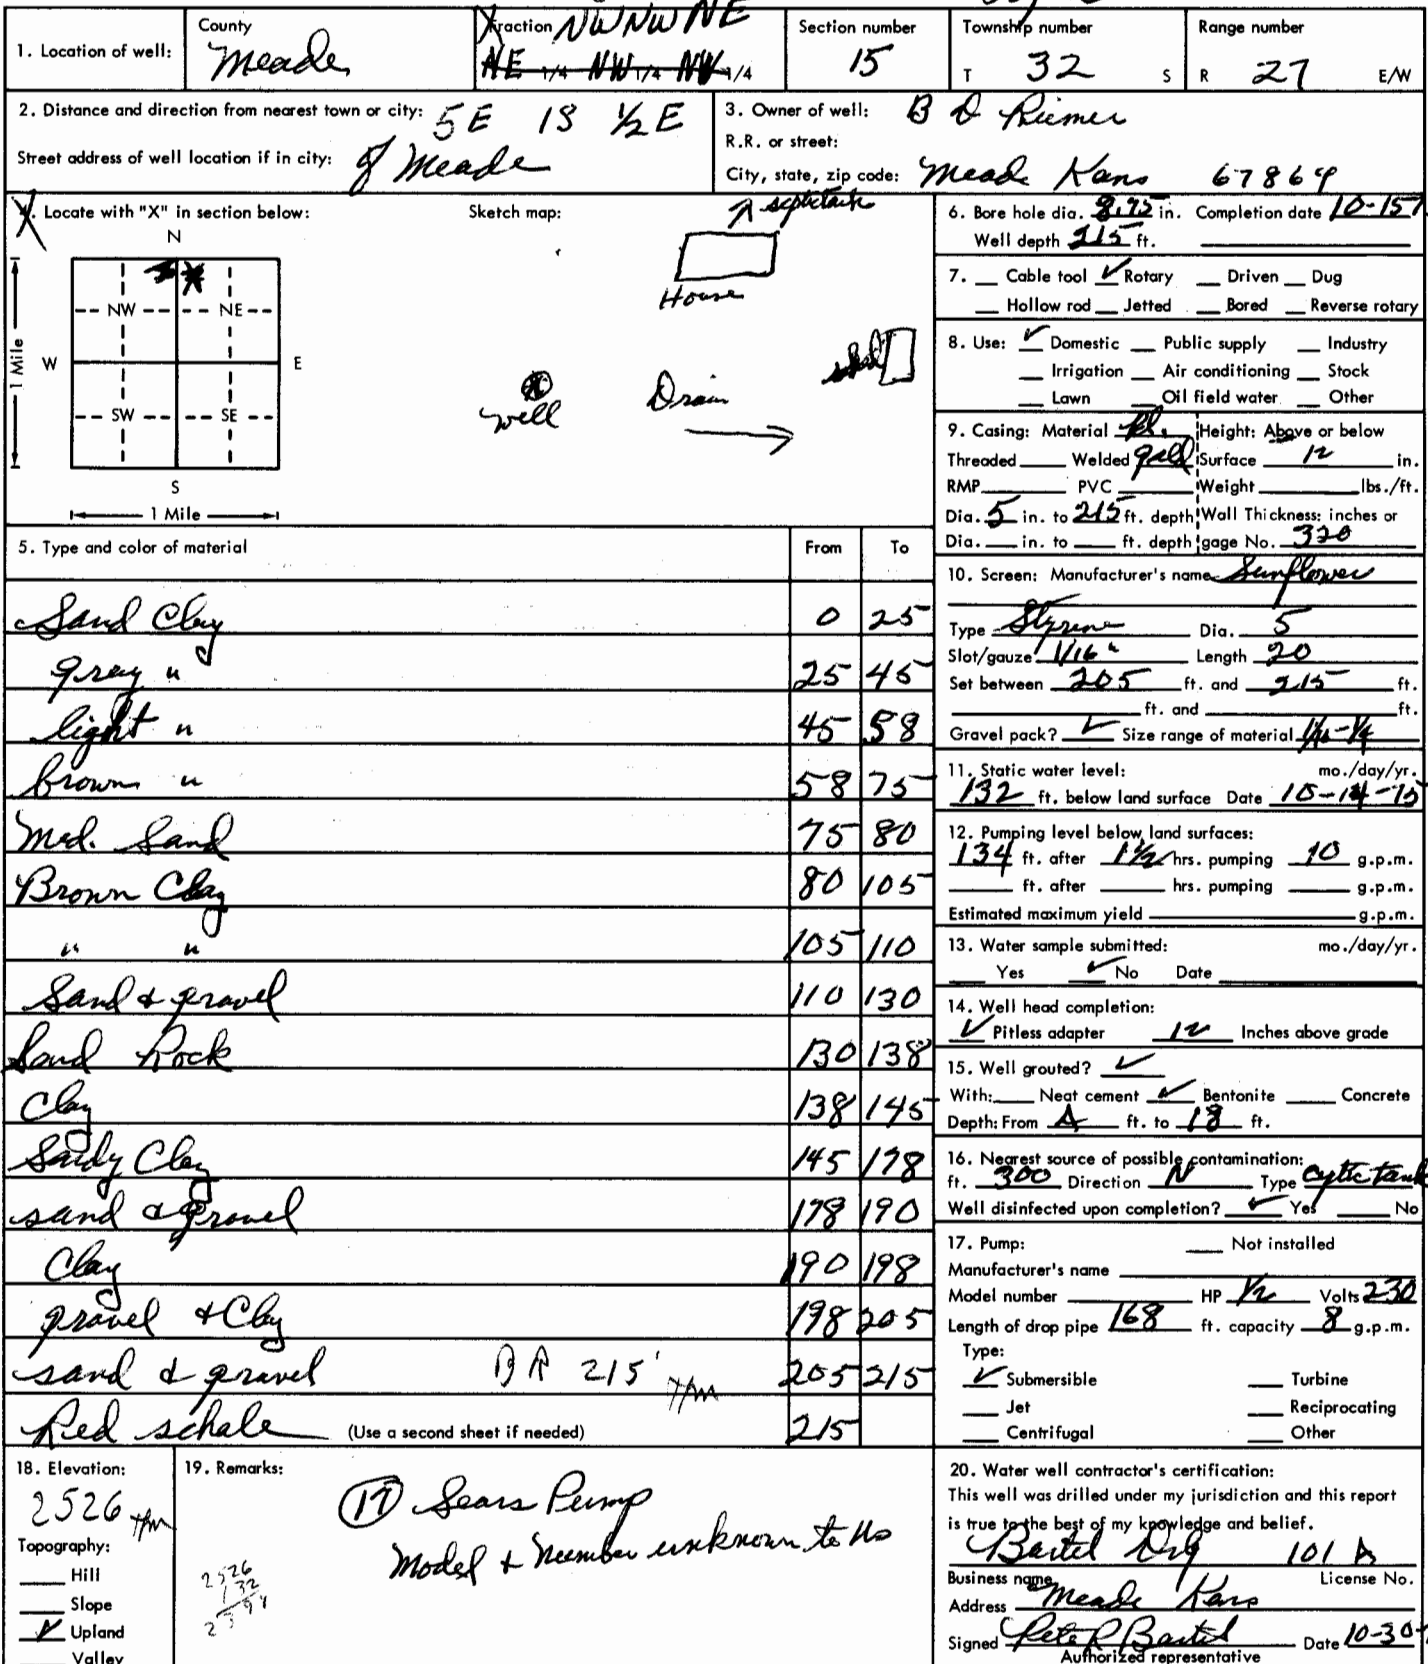 County
Fraction NW NW NE
Section number
Township number
Range number
1. Location of well:
Meade
NE 1/4 NW 1/4 NW 1/4
15
T 32 S
R 27 E/W
2. Distance and direction from nearest town or city: 5E 1S 1/2 E
Street address of well location if in city: of Meade
3. Owner of well: B D Riemer
R.R. or street:
City, state, zip code: Meade Kans 67864
4. Locate with "X" in section below:
N
NW NE
W E
SW SE
S
1 Mile
1 Mile
Sketch map:
septictank
House
shed
well
Drain
5. Type and color of material From To
Sand Clay 0 25
grey " 25 45
light " 45 58
brown " 58 75
Med. Sand 75 80
Brown Clay 80 105
" " 105 110
Sand & gravel 110 130
Sand Rock 130 138
Clay 138 145
Sandy Clay 145 178
sand & gravel 178 190
Clay 190 198
gravel & Clay 198 205
sand & gravel BR 215' 205 215
Red schale (Use a second sheet if needed) 215
6. Bore hole dia. 8.75 in. Completion date 10-15
Well depth 215 ft.
7. Cable tool ✓ Rotary Driven Dug
Hollow rod Jetted Bored Reverse rotary
8. Use: ✓ Domestic Public supply Industry
Irrigation Air conditioning Stock
Lawn Oil field water Other
9. Casing: Material pl. Height: Above or below
Threaded Welded Surface 12 in.
RMP PVC Weight lbs./ft.
Dia. 5 in. to 215 ft. depth Wall Thickness: inches or
Dia. in. to ft. depth gage No. 320
10. Screen: Manufacturer's name Sunflower
Type Styrene Dia. 5
Slot/gauze 1/16" Length 20
Set between 205 ft. and 215 ft.
ft. and ft.
Gravel pack? ✓ Size range of material 1/16-1/4
11. Static water level: mo./day/yr.
132 ft. below land surface Date 10-14-75
12. Pumping level below land surfaces:
134 ft. after 1 1/2 hrs. pumping 10 g.p.m.
ft. after hrs. pumping g.p.m.
Estimated maximum yield g.p.m.
13. Water sample submitted: mo./day/yr.
Yes ✓ No Date
14. Well head completion:
✓ Pitless adapter 12 Inches above grade
15. Well grouted? ✓
With: Neat cement ✓ Bentonite Concrete
Depth: From ft. to 18 ft.
16. Nearest source of possible contamination:
ft. 300 Direction N Type cyttic tank
Well disinfected upon completion? ✓ Yes No
17. Pump: Not installed
Manufacturer's name
Model number HP 1/2 Volts 230
Length of drop pipe 168 ft. capacity 8 g.p.m.
Type:
✓ Submersible Turbine
Jet Reciprocating
Centrifugal Other
18. Elevation:
2526
Topography:
Hill
Slope
✓ Upland
Valley
19. Remarks:
(17) Sears Pump
Model & Number unknown to us
2526
132
2394
20. Water well contractor's certification:
This well was drilled under my jurisdiction and this report
is true to the best of my knowledge and belief.
Bartel Drlg 101 A
Business name License No.
Address Meade Kans
Signed Pete R Bartel Date 10-30-
Authorized representative